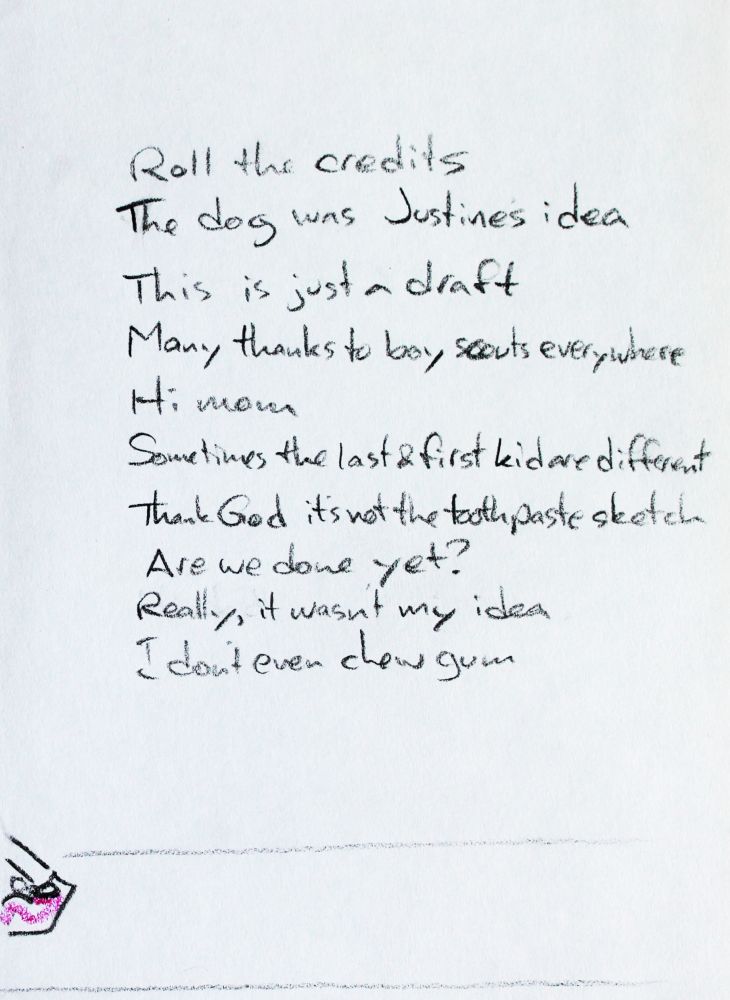 Roll the credits
The dog was Justine's idea
This is just a draft
Many thanks to boy scouts everywhere
Hi mom
Sometimes the last & first kid are different
Thank God it's not the toothpaste sketch
Are we done yet?
Really, it wasn't my idea
I don't even chew gum